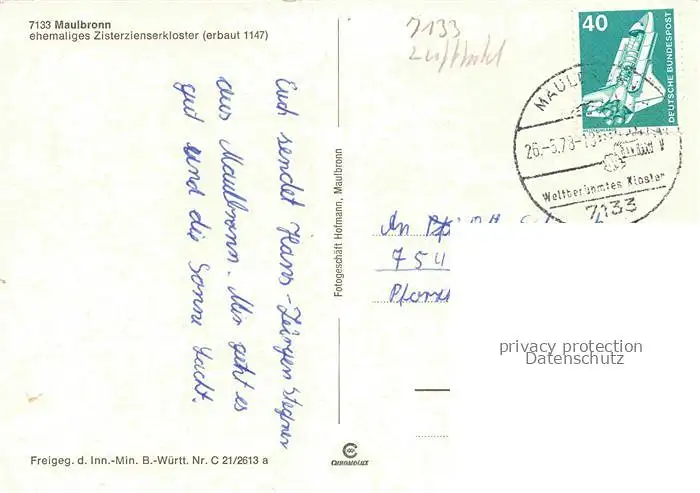 7133 Maulbronn
ehemaliges Zisterzienserkloster (erbaut 1147)
7133
Luftbild
40
DEUTSCHE BUNDESPOST
MAULB
26.-5.78-18
Weltberühmtes Kloster
7133
Euch sendet Hans-Jürgen Stegner
aus Maulbronn. Mir geht es
gut und die Sonne lacht.
Fotogeschäft Hofmann, Maulbronn
An
754
Pforz
privacy protection
Datenschutz
Freigeg. d. Inn.-Min. B.-Württ. Nr. C 21/2613 a
CHROMOLUX